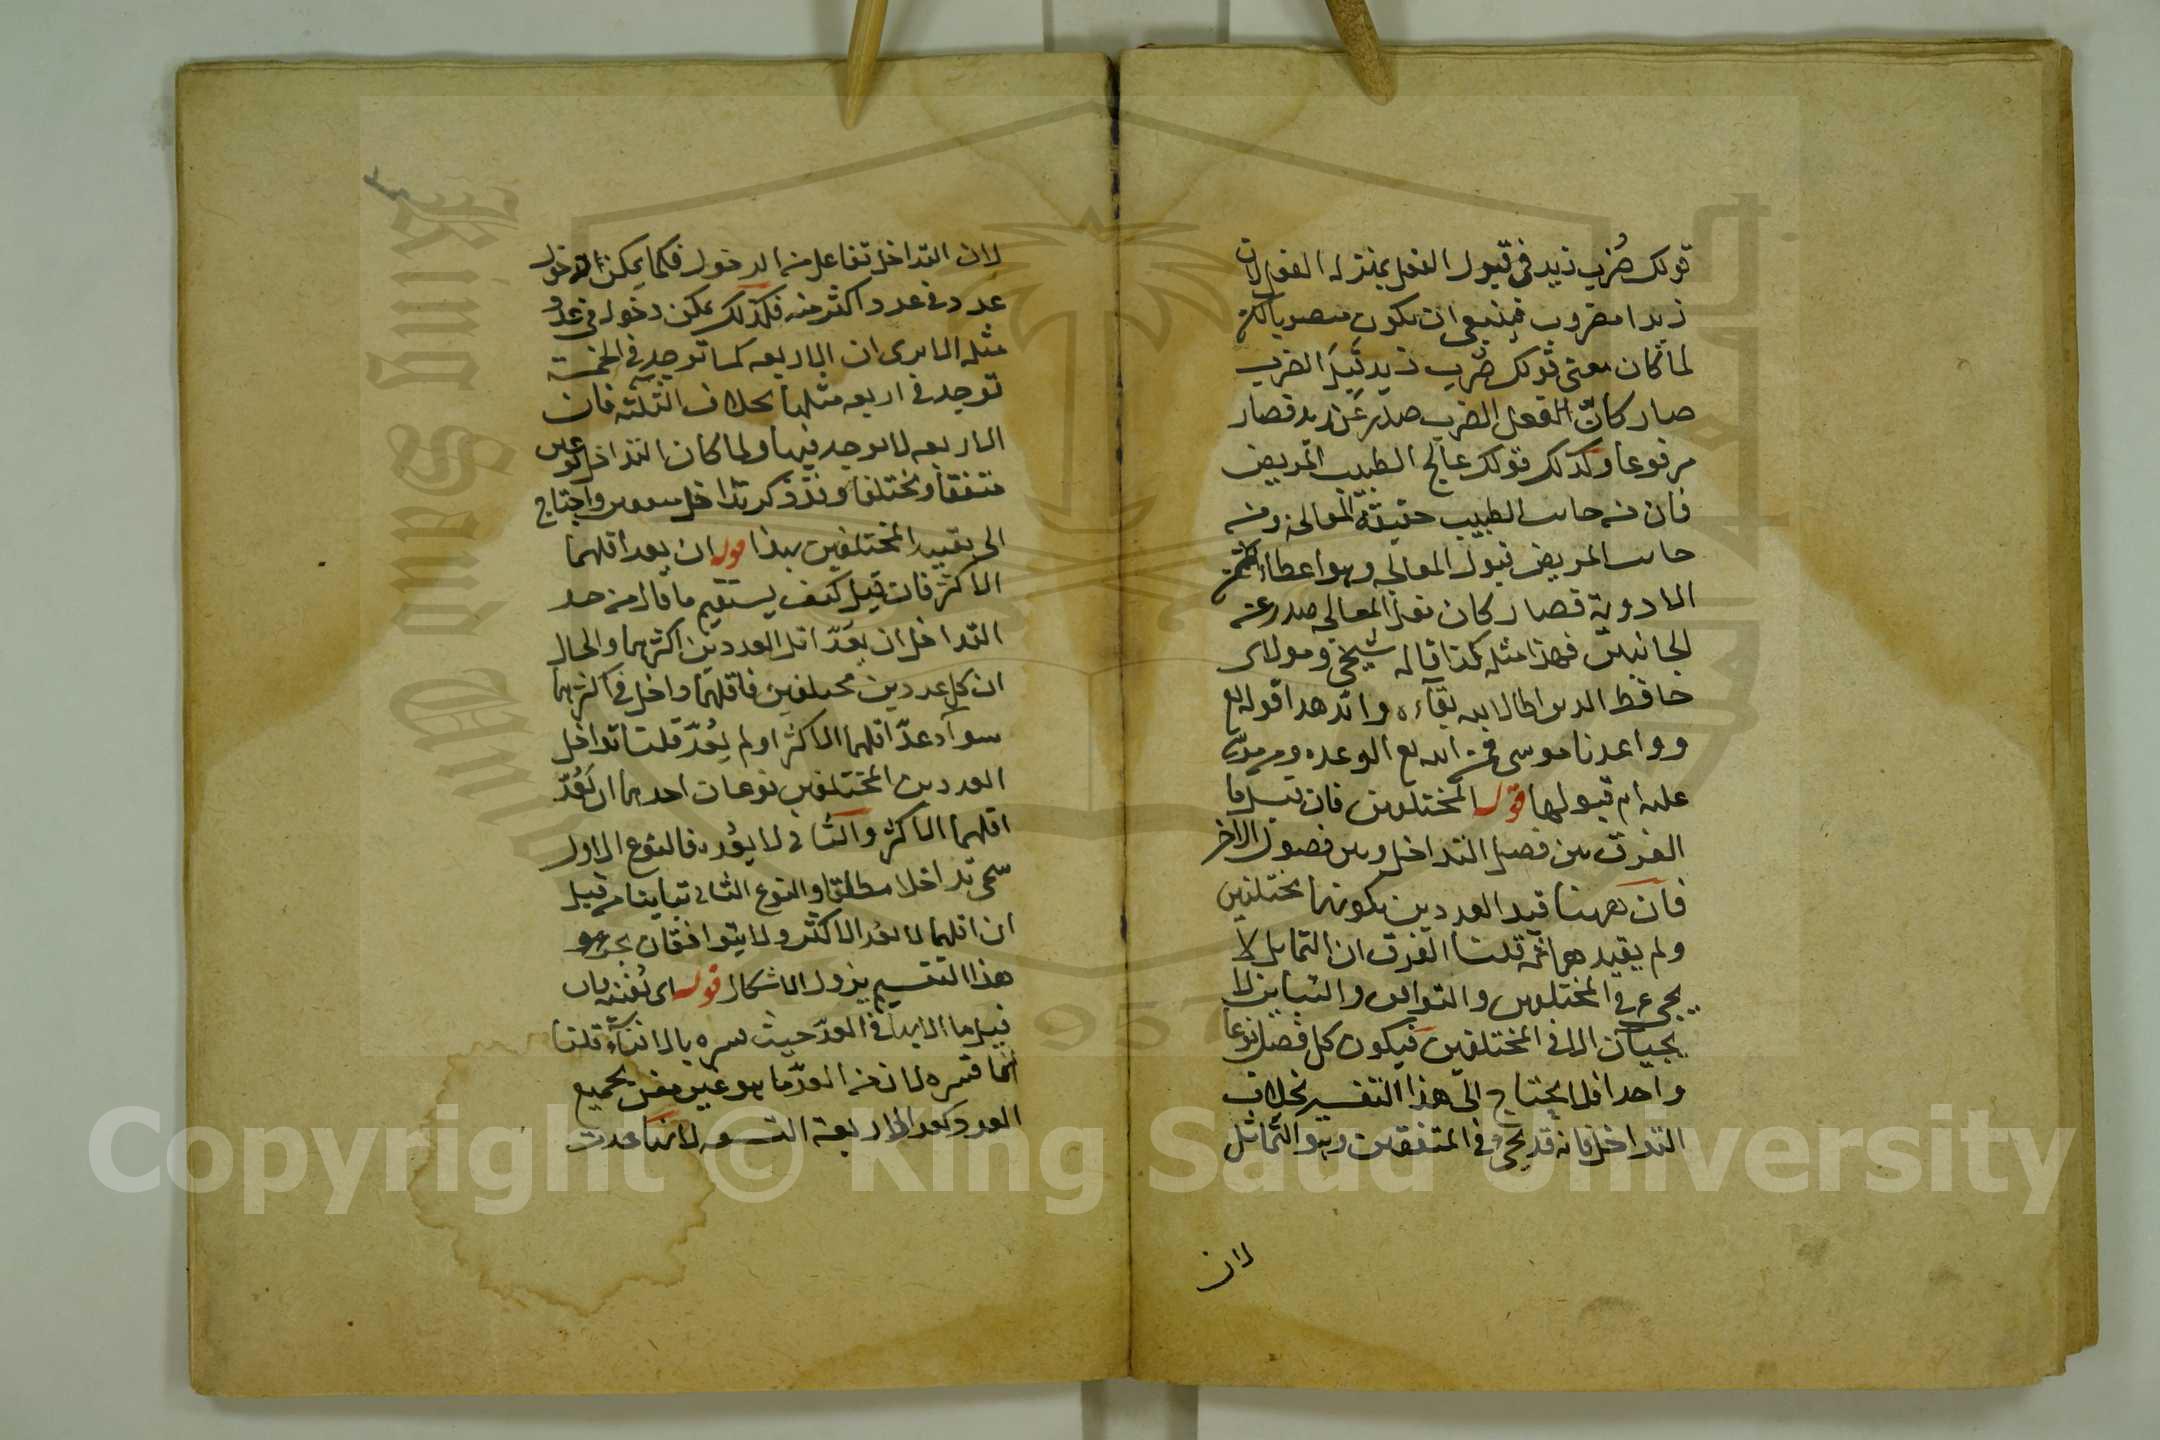 قولك ضُرب زيد في قبول الفعل بمنزلة الفعل لان
زيدا مضروب فينبغي ان يكون منصوبا لكنه
لما كان معنى قولك ضُرب زيد قَبِلَ الضرب
صار كانّ الفعل الضرب صدر عن زيد فصار
مرفوعا وكذلك قولك عالج الطبيب المريض
فان من جانب الطبيب حقيقة المعالجة ومن
جانب المريض قبول المعالجة وهو اعطاء
الادوية فصار كان فعل المعالجة صدر عن
الجانبين فهذا مثله كذا قاله شيخي ومولاي
حافظ الدين اطال الله بقاءه واتد هذا قوله تع
وواعدنا موسى فمن الله تع الوعده ومن موسى
عليه ام قبولها قوله المختلفين فان قيل ما
الفرق بين فصل التداخل وبين فصول الاخر
فان ههنا قيد العددين بكونهما مختلفين
ولم يقيد هما ثمه قلنا الفرق ان التماثل لا
يجيء في المختلفين والتوافق والتباين لا
يجيآن الا في المختلفين فيكون كل فصل نوعا
واحدا فلا يحتاج الى هذا التفسير بخلاف
التداخل فانه قد يجيء في المتفقين وهو التماثل
لان
لان التداخل تفاعل من الدخول فكما يمكن دخول
عدد في عدد اكثر منه فكذلك يمكن دخوله في عدد
مثله الا يرى ان الاربعه كما توجد في الخمسة
توجد في اربعه مثلها بخلاف الثلثه فان
الاربعه لا توجد فيها ولما كان التداخل نوعين
متفقا ومختلفا وقد ذكر تداخل واحتاج
الى تقييد المختلفين بهذا قوله ان يعد اقلهما
الاكثر فان قيل كيف يستقيم ما قال من حد
التداخل ان يَعُدّ اقل العددين اكثرهما والحال
ان كل عددين مختلفين فاقلهما داخل في اكثرهما
سوآء عدّ اقلهما الاكثر او لم يعُدّ قلنا تداخل
العددين المختلفين نوعان احدهما ان يَعُدّ
اقلهما الاكثر والثاني لا يعُده فالنوع الاول
سمي تداخلا مطلقا والنوع الثاني تباينا من قبيل
ان اقلهما لا يعد الاكثر ولا يتوافقان بجزء
هذا التقسيم يزول الاشكال قوله اي تفنيه فان
قيل ما الابدآ في العدّ حيث فسره بالافنآء قلنا
انما فسره لان من العدّ ما هو غير مفن بجميع
العدد كعد الاربعة التسعه لانها عدت